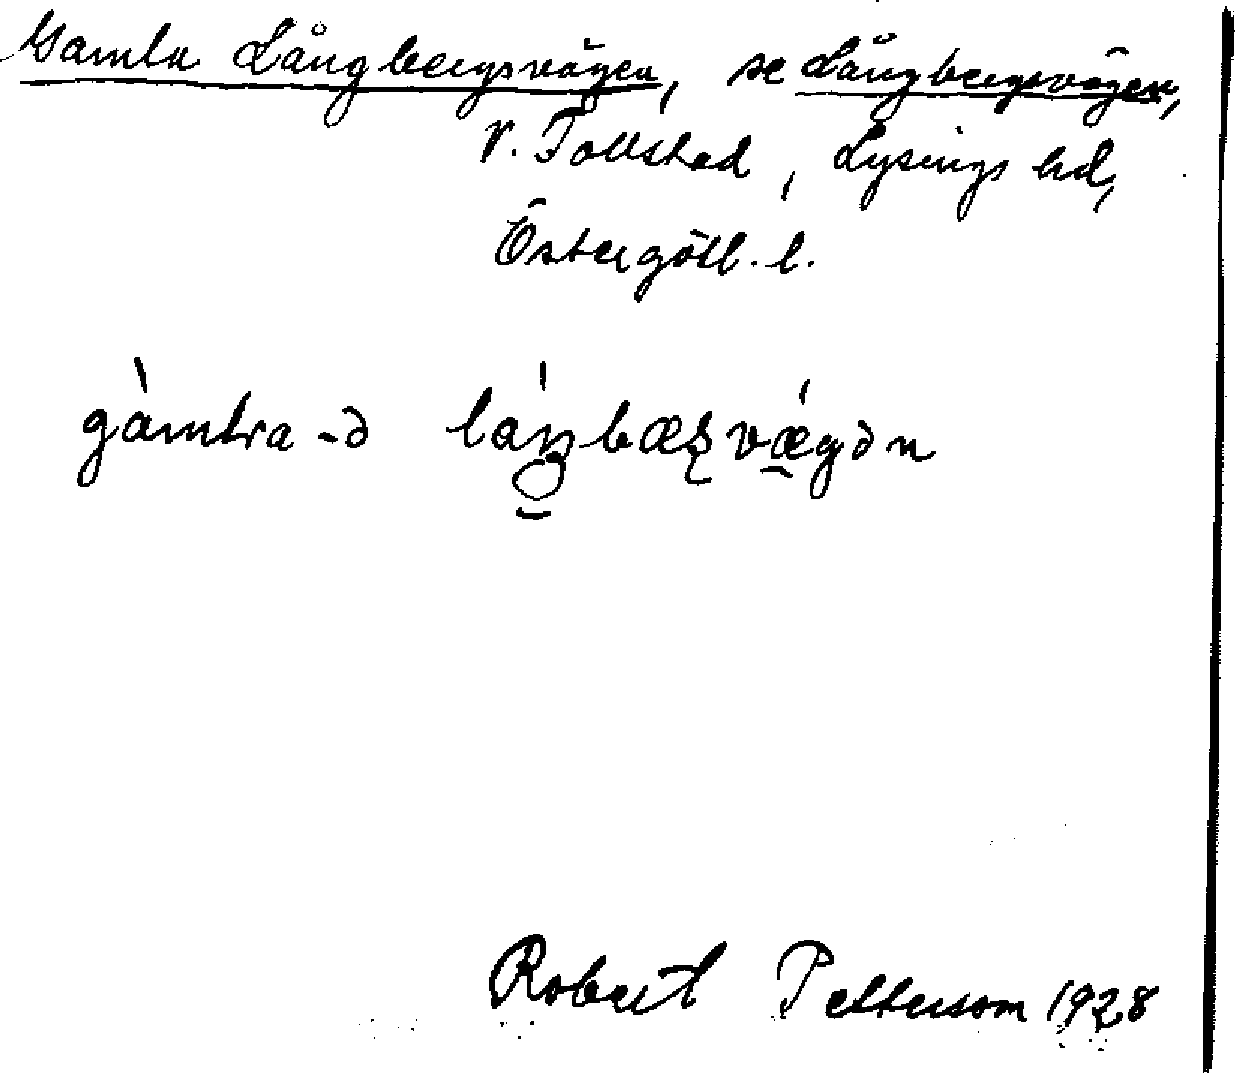 Gamla Långbergsvägen, se Långbergsvägen,
V. Tollstad, Lysings hd,
Östergötl. l.
Robert Petterson 1928